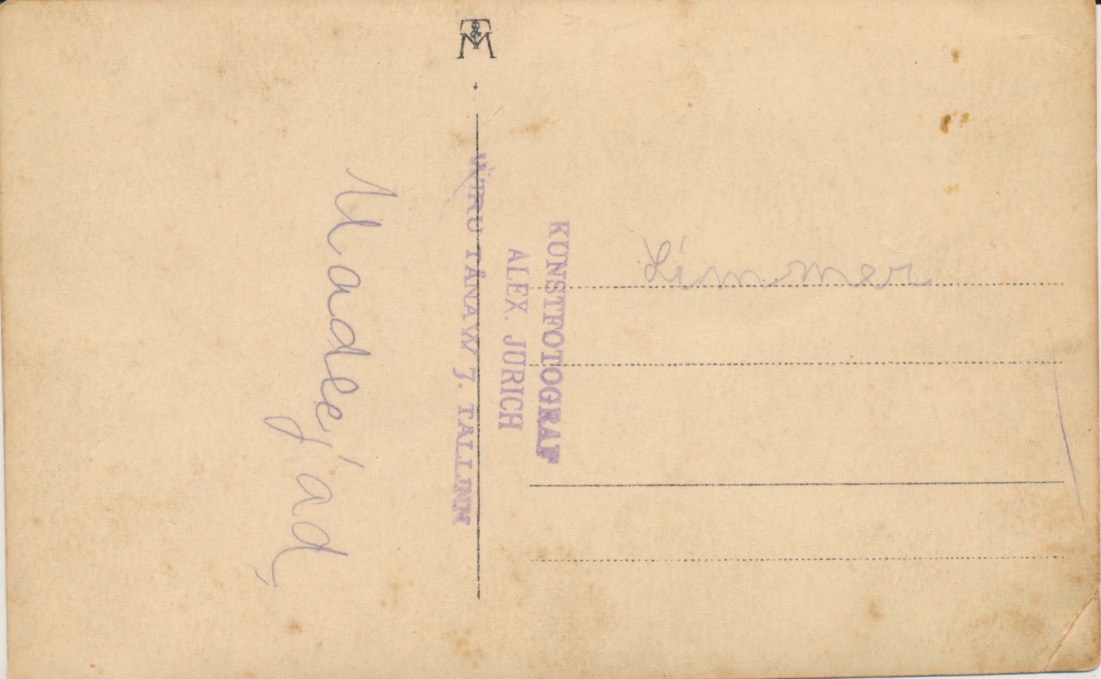 KUNSTFOTOGRAF
ALEX. JURICH
WIRU TÄNAW 7. TALLINN
Limmer